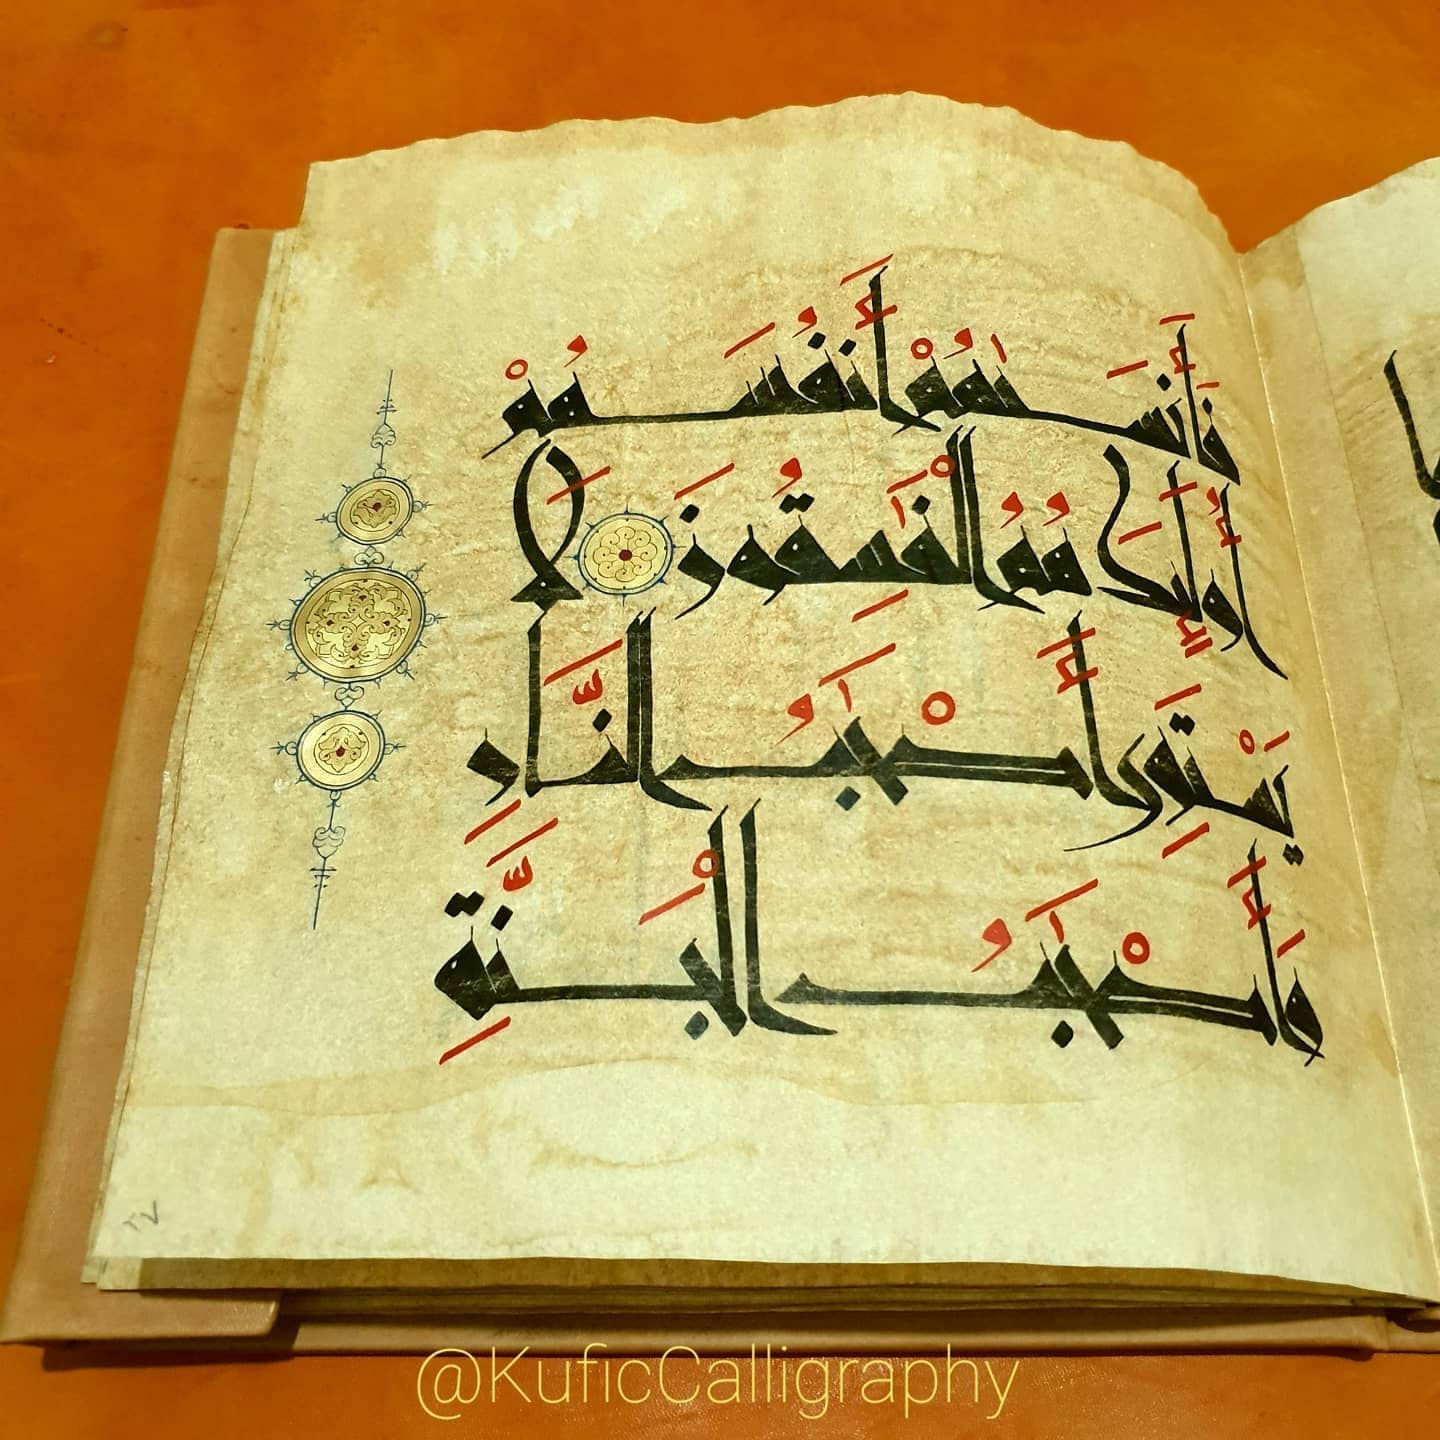 فَأَنسَىٰهُمْ أَنفُسَهُمْ
أُولَٰٓئِكَ هُمُ الْفَٰسِقُونَ لَا
يَسْتَوِىٓ أَصْحَٰبُ النَّارِ
وَأَصْحَٰبُ الْجَنَّةِ
٢٧
@KuficCalligraphy